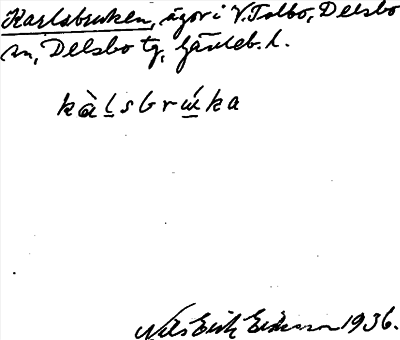 Karlsbruken, ägor i V. Tolbo, Delsbo
sn, Delsbo tg, Gävleb. l.
kàlsbrúka
Nils Erik Eriksson 1936.